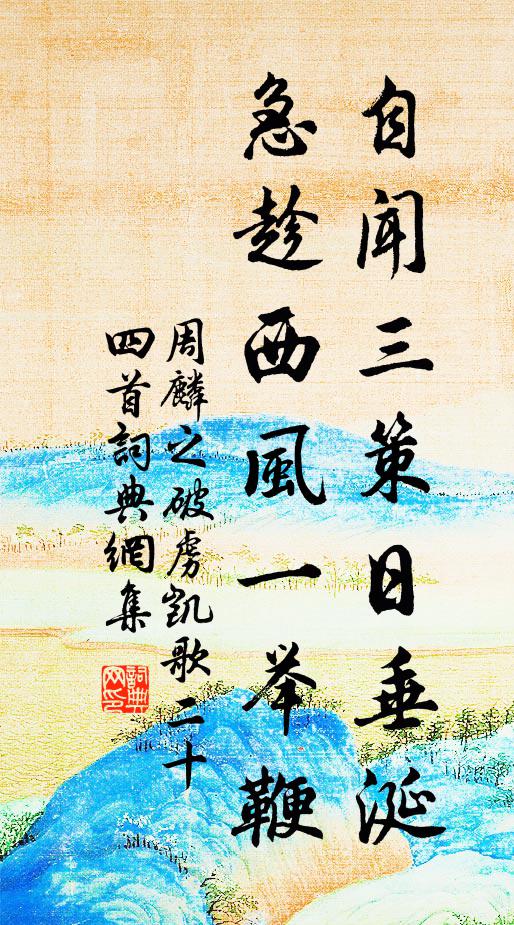 自闻三策日垂涎
急趁西風一举鞭
周麟之破虏凯歌二十
四首詞典網集
詞典
网印